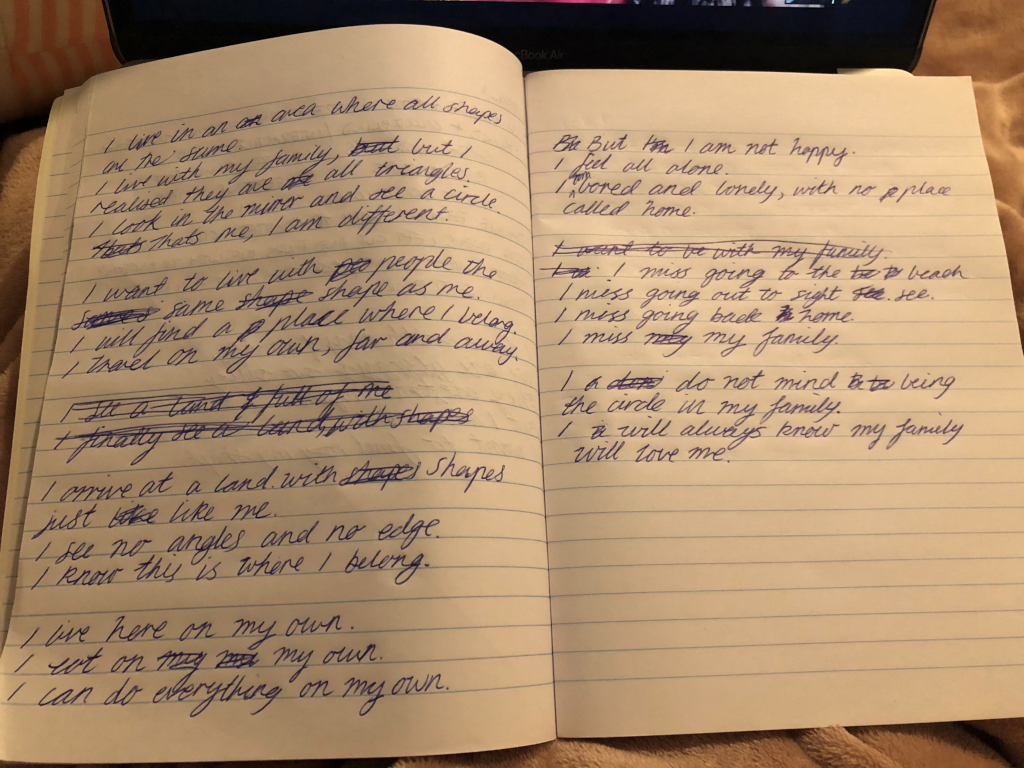 MacBook Air
I live in an area where all shapes
are the same.
I live with my family, but but I
realised they are all triangles.
I look in the mirror and see a circle.
Thats Thats me, I am different.
I want to live with people the
same shape shape as me.
I will find a place where I belong.
I travel on my own, far and away.
I see a land full of me
I finally see a land, with shapes
I arrive at a land with shapes shapes
just like like me.
I see no angles and no edge.
I know this is where I belong.
I live here on my own.
I eat on my my own.
I can do everything on my own.
But I am not happy.
I feel all alone.
I am bored and lonely, with no place
called home.
I want to be with my family.
I miss going to the beach
I miss going out to sight see. see.
I miss going back home.
I miss my my family.
I do not mind being
the circle in my family.
I will always know my family
will love me.